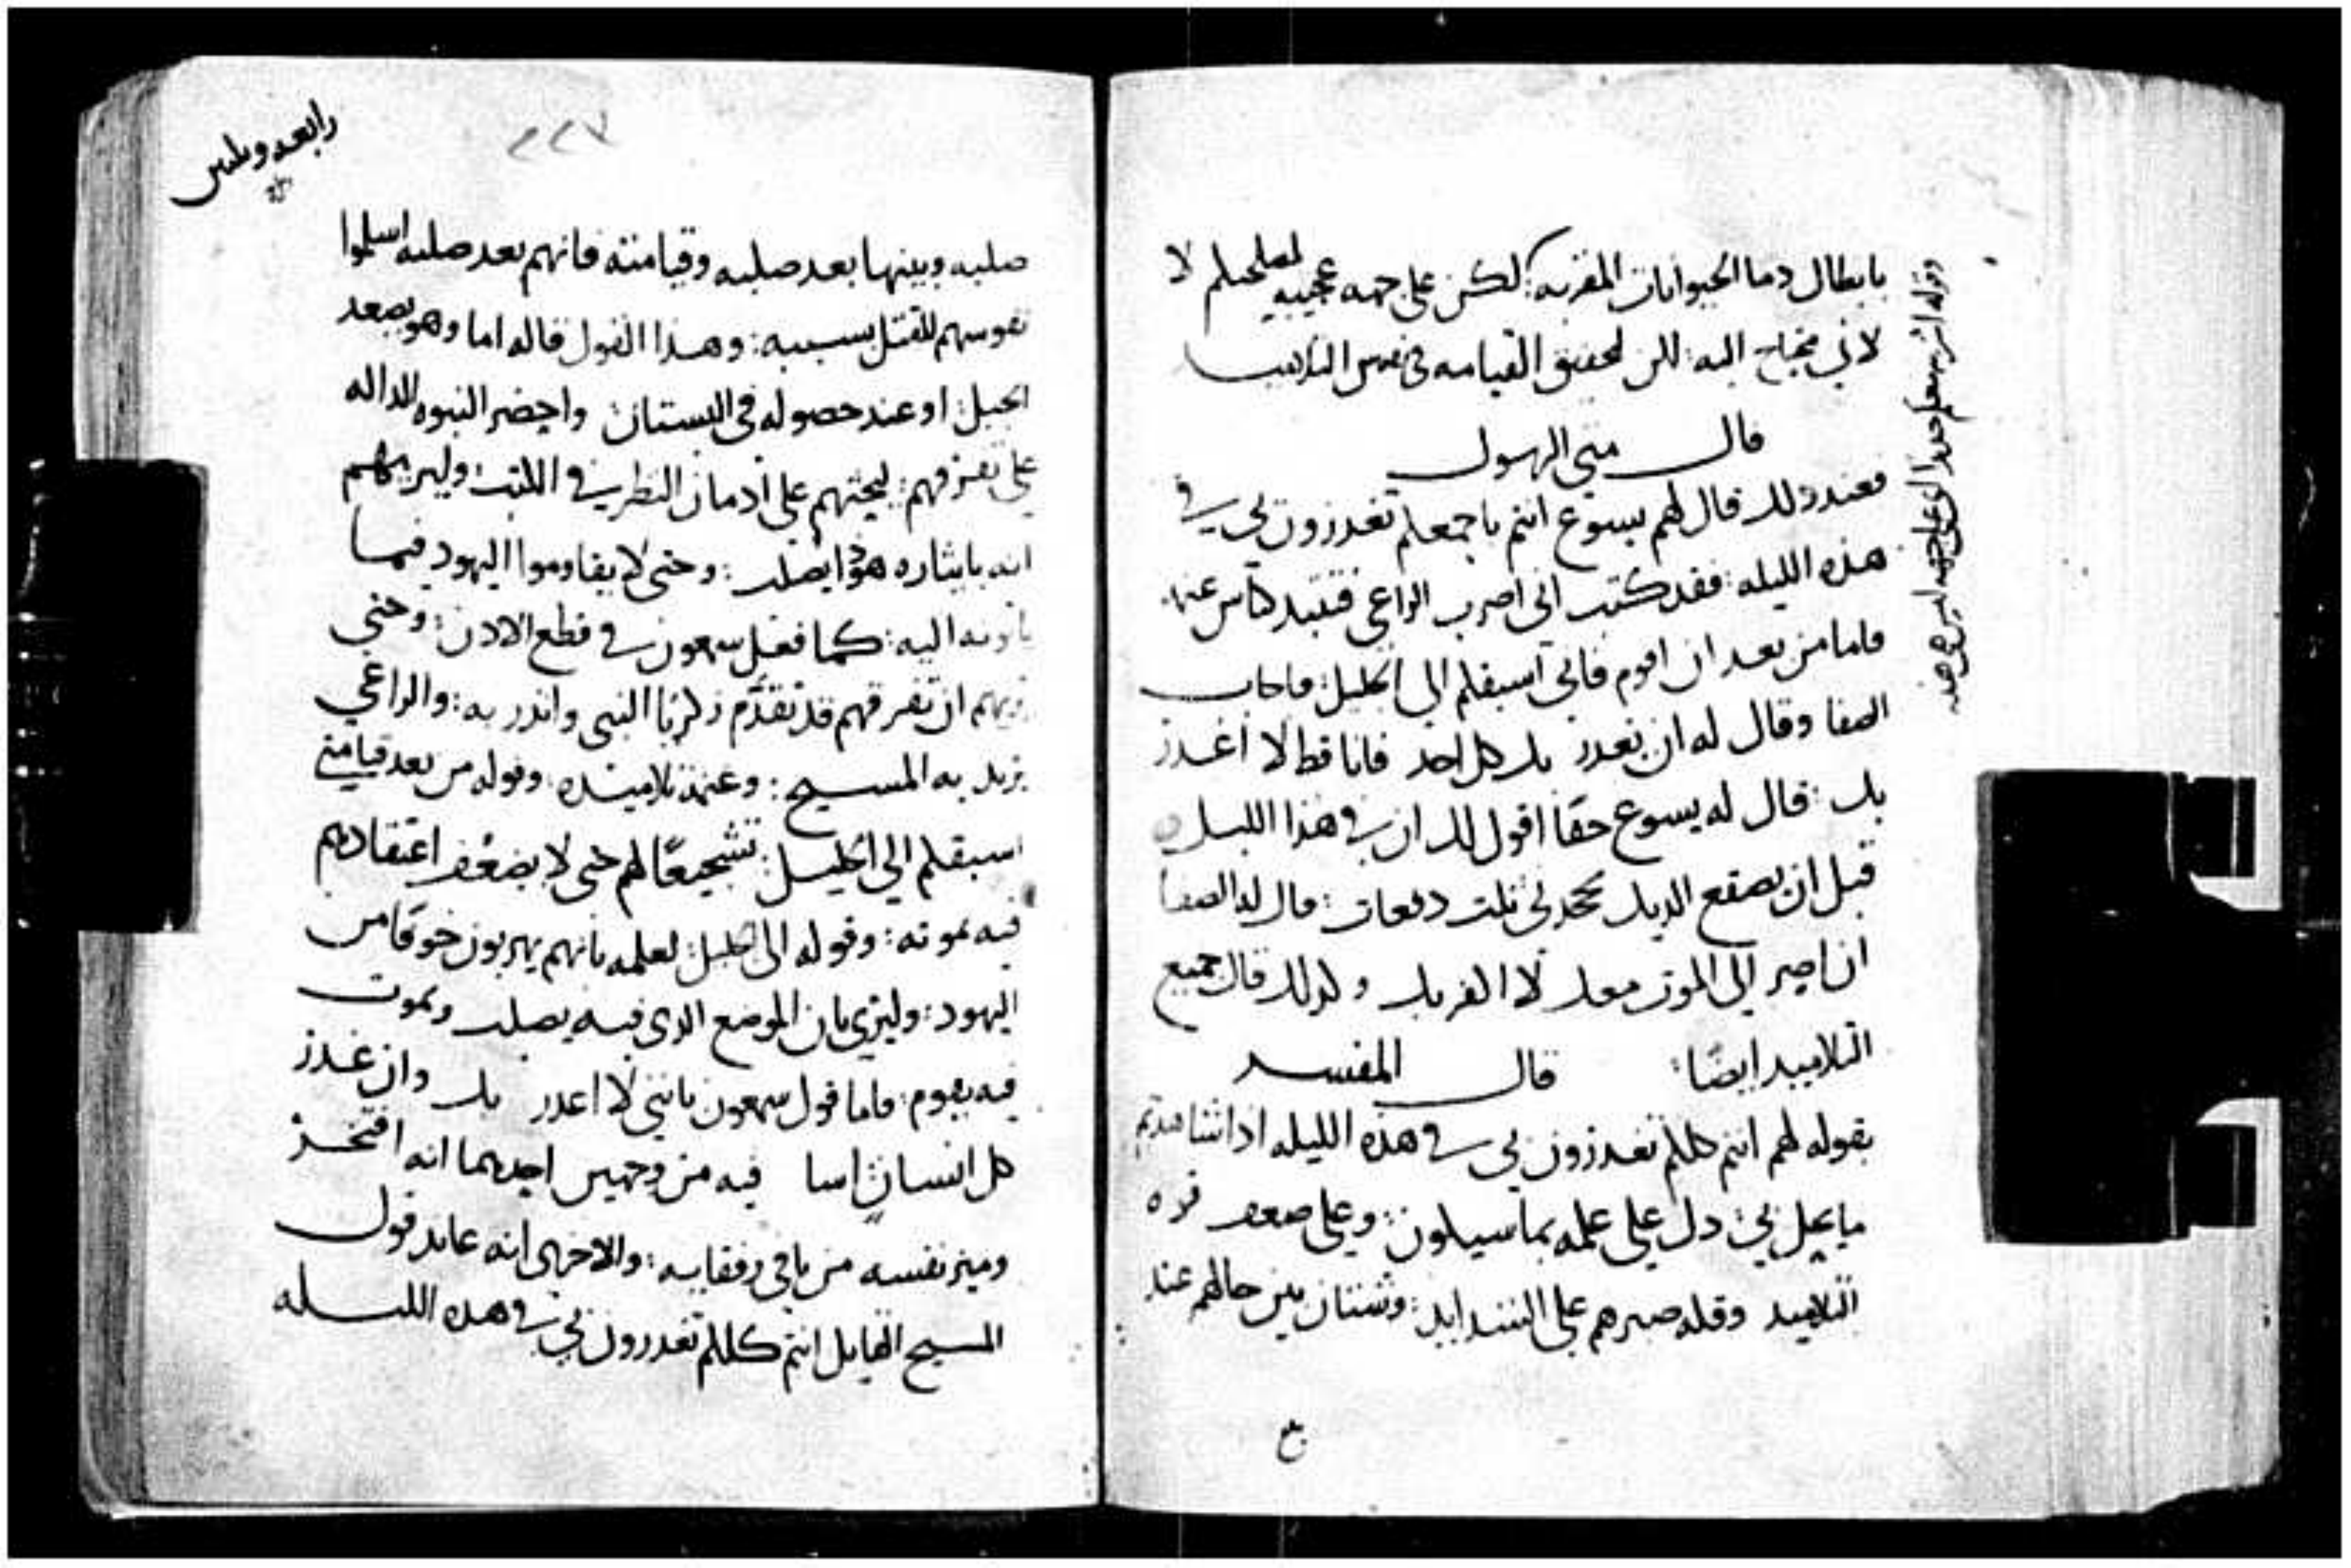 بابطال دما الحيوانات المقربه: لكن على جهه عجيبه لمصلحتكم لا
لاني محتاج اليه: لكن لتحقيق القيامه في نفوس التلاميذ
قال متى الرسول
فعند ذلك قال لهم يسوع انتم باجمعكم تغدرون بي في
هذه الليله: فقد كتب اني اضرب الراعي فتتبدد كباش غنمه
فاما من بعد ان اقوم فاني اسبقكم الى الجليل: فاجاب
الصفا وقال له ان يغدر بك كل احد فانا قط لا اغدر
بك: قال له يسوع حقا اقول لك ان في هذا الليل
قبل ان يصقع الديك تجحدني ثلث دفعات: قال له الصفا
ان اصير الى الموت معك لا اكفر بك وكذلك قال جميع
التلاميذ ايضًا: قال المفسر
بقوله لهم انتم كلكم تغدرون بي في هذه الليله اذا شاهدتم
ما يحل بي: دل على علمه بما سيكون: وعلى ضعف قوه
التلاميذ وقله صبرهم على الشدايد: وشتان بين حالهم عند
وقوله اشربه معكم جديدا اي على جهه ليس هي هذه
رابعه وثلثين
٢٢٧
صلبه وبينها بعد صلبه وقيامته فانهم بعد صلبه اسلموا
نفوسهم للقتل بسببه: وهذا القول قاله اما وهو يصعد
الجبل: او عند حصوله في البستان واحضر النبوه الداله
على تفرقهم: ليحثهم على ادمان النظر في الكتب: وليريهم
انه بايثاره هوذا يصلب: وحتى لا يقاوموا اليهود فيما
ياتونه اليه: كما فعل سمعون في قطع الاذن: وحتى
يريهم ان تفرقهم قد تقدَّم زكريا النبي وانذر به: والراعي
يريد به المسيح: وغنمه تلاميذه: وقوله من بعد قيامتي
اسبقكم الى الجليل: تشجيعًا لهم حتى لا يضعُف اعتقادهم
فيه بموته: وقوله الى الجليل: لعلمه بانهم يهربون خوفًا من
اليهود: وليري بان الموضع الذي فيه يصلب ويموت
فيه يقوم: فاما قول سمعون بانني لا اغدر بك وان غدر
كل انسان اسا فيه من وجهين احدهما انه افتخر
وميز نفسه من باقي رفقايه: والاخرى انه عاند قول
المسيح القايل انتم كلكم تغدرون بي في هذه الليله